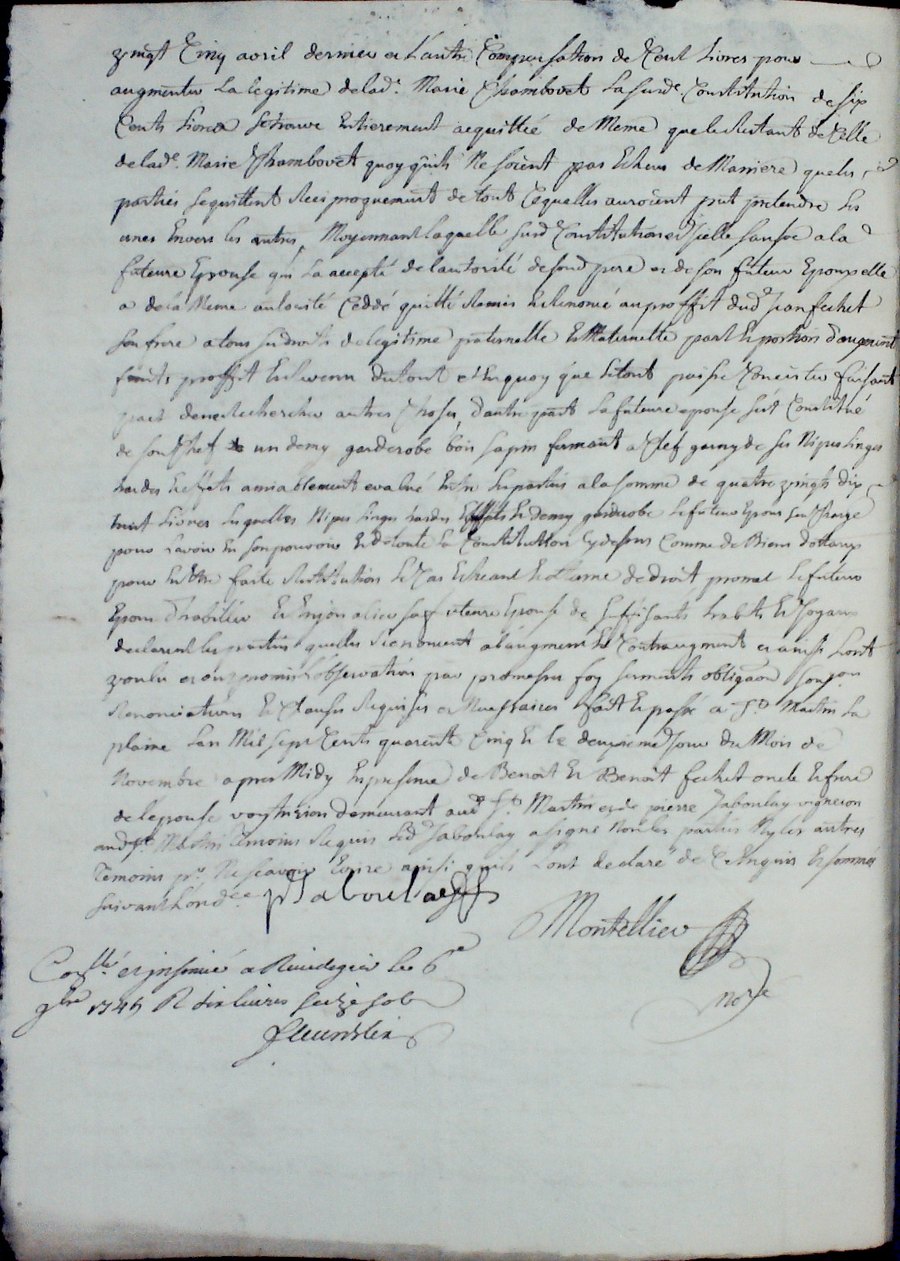 vingt Cinq avril dernier et L'autre Compensation de Cent Livres pour
augmenter La legitime de lad.e Marie Chambovet La susd.e Constitution de six
Cents Livres se trouve Entierement acquittée de Meme que le Restant de Celle
de lad.e Marie Chambovet quoy quils Ne soient pas Echeus de Maniere quelles
parties se quittent Reciproquement de tout Ce quelles auroient put pretendre Les
unes Envers les autres, Moyennant laquelle susd.e Constitution a la
future Epouse qui La accepté de lautorité de sond. pere et de son futeur Epoux elle
a de la Meme authorité Ceddé quitté Remis et Renoncé au proffit dud. Jean fechet
son frere a tous ses droits de legitime paternelle et Maternelle part et portion d'augment
fruits proffit et Revenu du tout et En quoy que le tout puisse Concister faisant
pact de ne Rechercher autres Choses, d'autre part La future epouse sest Constitué
de son Chef un demy garderobe bois sapin fermant a Clef garny de ses Nipes Linges
hardes et Effets amiablement evalué Entre Les parties a la somme de quatre vingts dix
huit Livres Lesquelles Nipes Linges hardes Effets et demy garderobe le futeur Epoux sest Chargé
pour Lavoir En son pouvoir Et de toute La Constitution Cy dessus Comme de Biens dotaux
pour En Etre faite Restitution Le Cas Echeant Et a terme de droit promet Le futeur
Epoux d'habiller Et Enjoualier sa future Epouse de suffisants habits Et Joyaux
declarent les parties quelles Renoncent a l'augment Et Contraugment et ainsi Lont
voulu et ont promis L'observation par promesses foy serments obligaon
Renonciations Et Clauses Requises et Necessaires fait Et passé a St. Martin La
plaine Lan Mil sept Cents quarente Cinq Et le deuxieme Jour du Mois de
Novembre apres Midy En presence de Benoit Et Benoit fechet oncle Et frere
de lepouse demeurant aud. St. Martin et de pierre Jaboulay vigneron
aud. St. Martin temoins Requis Led. Jaboulay a signé Non les parties Ny les autres
temoins pr. Ne scavoir Ecrire ainsi quils Lont declaré de Ce Enquis Et sommés
suivant L'ord.ce P Jaboulay
Montellier
no.re
Con.llé et insinué a Rivedegier Le 6.e
9bre 1745 R dix livres seize sols